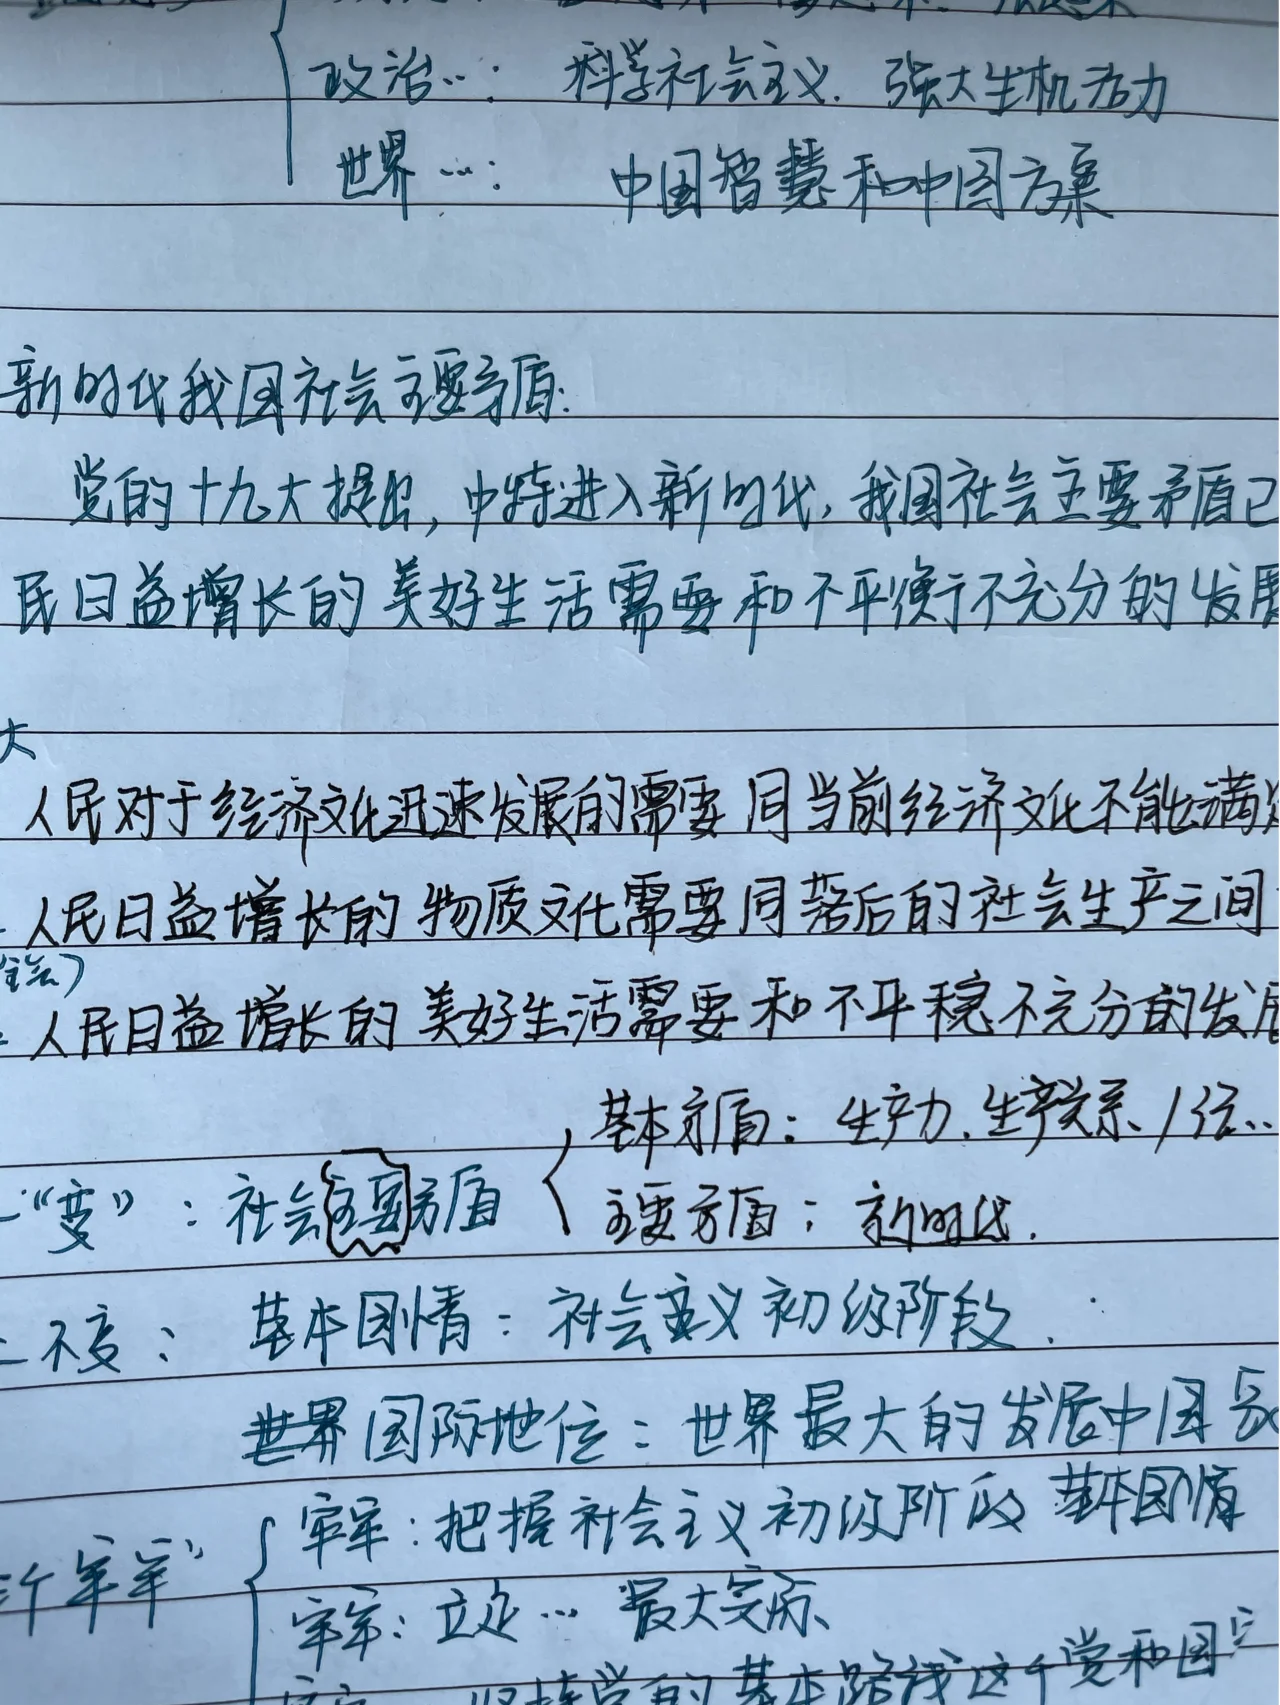 政治…：科学社会主义．强大生机活力
世界…：中国智慧和中国方案
新时代我国社会主要矛盾：
党的十九大提出，中特进入新时代，我国社会主要矛盾已
民日益增长的美好生活需要和不平衡不充分的发展
大
人民对于经济文化迅速发展的需要同当前经济文化不能满
人民日益增长的物质文化需要同落后的社会生产之间
全会）
人民日益增长的美好生活需要和不平稳不充分的发展
基本矛盾：生产力、生产关系、
一“变”：社会主要矛盾
主要矛盾：新时代．
二不变：基本国情：社会主义初级阶段．
世界国际地位：世界最大的发展中国家
牢牢：把握社会主义初级阶段基本国情
三个牢牢”
牢牢：立足…最大实际、
坚持党的基本路线这个党和国